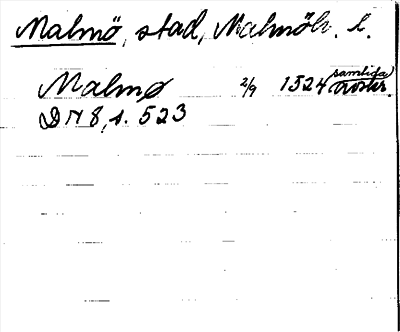 Malmö, stad, Malmöh. l.
Malmø 2/9 1524 samtida avskr.
DN 8, s. 523